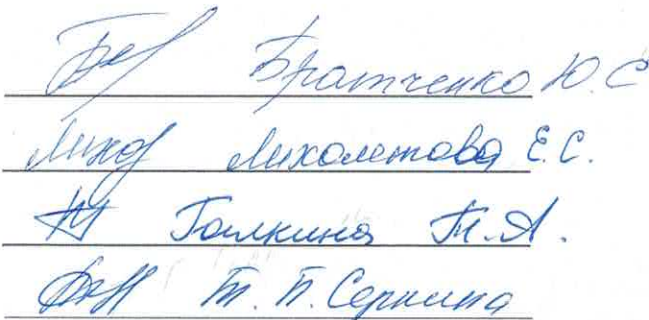 Братченко Ю.С
Лихолетова Е.С.
Галкина Т.А.
Т.П. Сернина